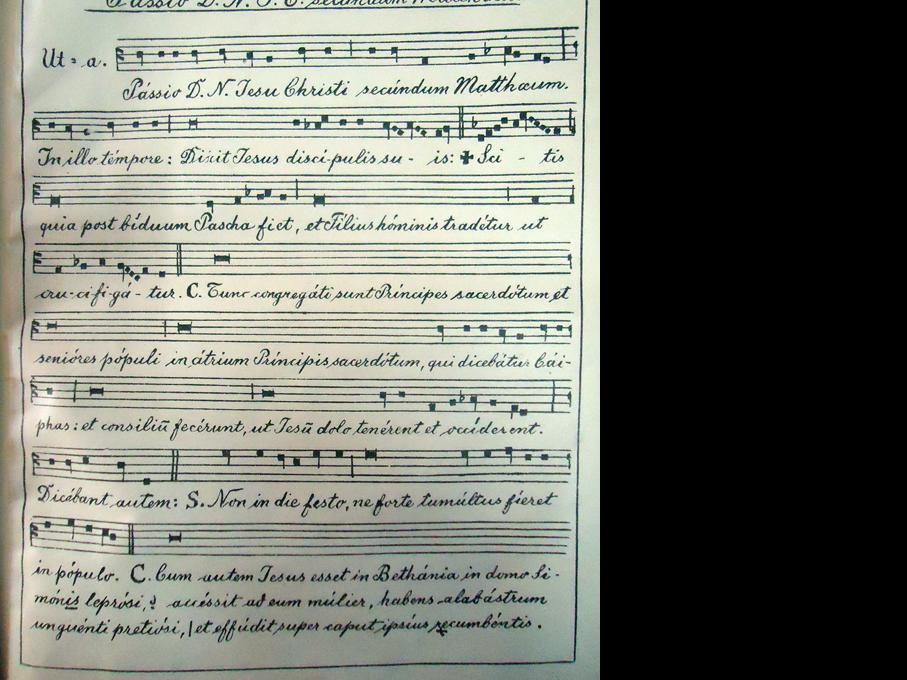 Passio D. N. J. C. secundum Matthaeum
Ut = a.
Pássio D. N. Jesu Christi secúndum Matthæum.
In illo témpore: Dixit Jesus discí-pulis su - is: ✠ Sci - tis
quia post bíduum Pascha fiet, et Fílius hóminis tradétur ut
cru-ci-fi-gá-tur. C. Tunc congregáti sunt Príncipes sacerdótum et
senióres pópuli in átrium Príncipis sacerdótum, qui dicebátur Cái-
phas: et consiliū fecérunt, ut Jesū dolo tenérent et occíderent.
Dicébant autem: S. Non in die festo, ne forte tumúltus fíeret
in pópulo. C. Cum autem Jesus esset in Bethánia in domo Si-
mónis leprósi, accéssit ad eum múlier, habens alabástrum
unguénti pretiósi, | et effúdit super caput ipsíus recumbéntis.